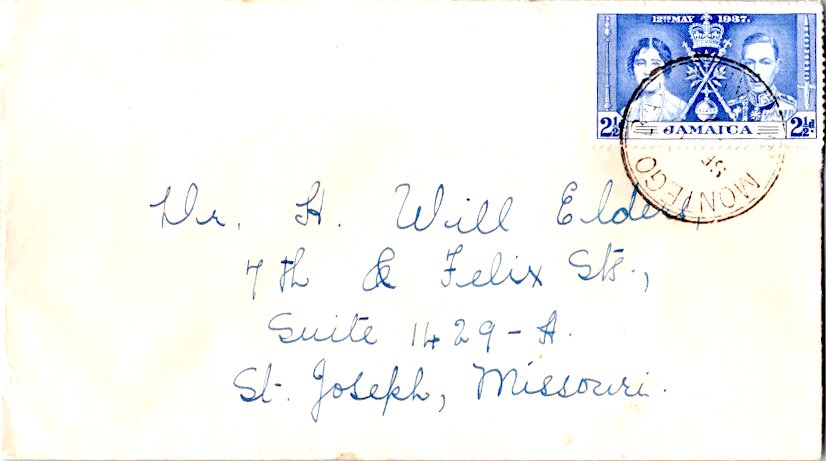 12TH MAY 1937.
2½d JAMAICA 2½d.
MONTEGO
SP
Dr. H. Will Elders,
7th & Felix Sts.,
Suite 1429-A.
St. Joseph, Missouri.